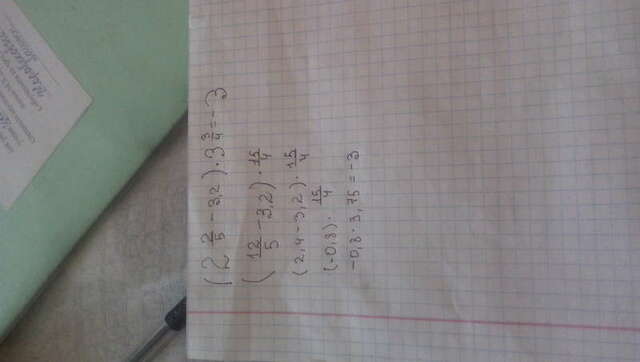 (2 2/5 - 3,2) · 3 3/4 = -3
(12/5 - 3,2) · 15/4
(2,4 - 3,2) · 15/4
(-0,8) · 15/4
-0,8 · 3,75 = -3